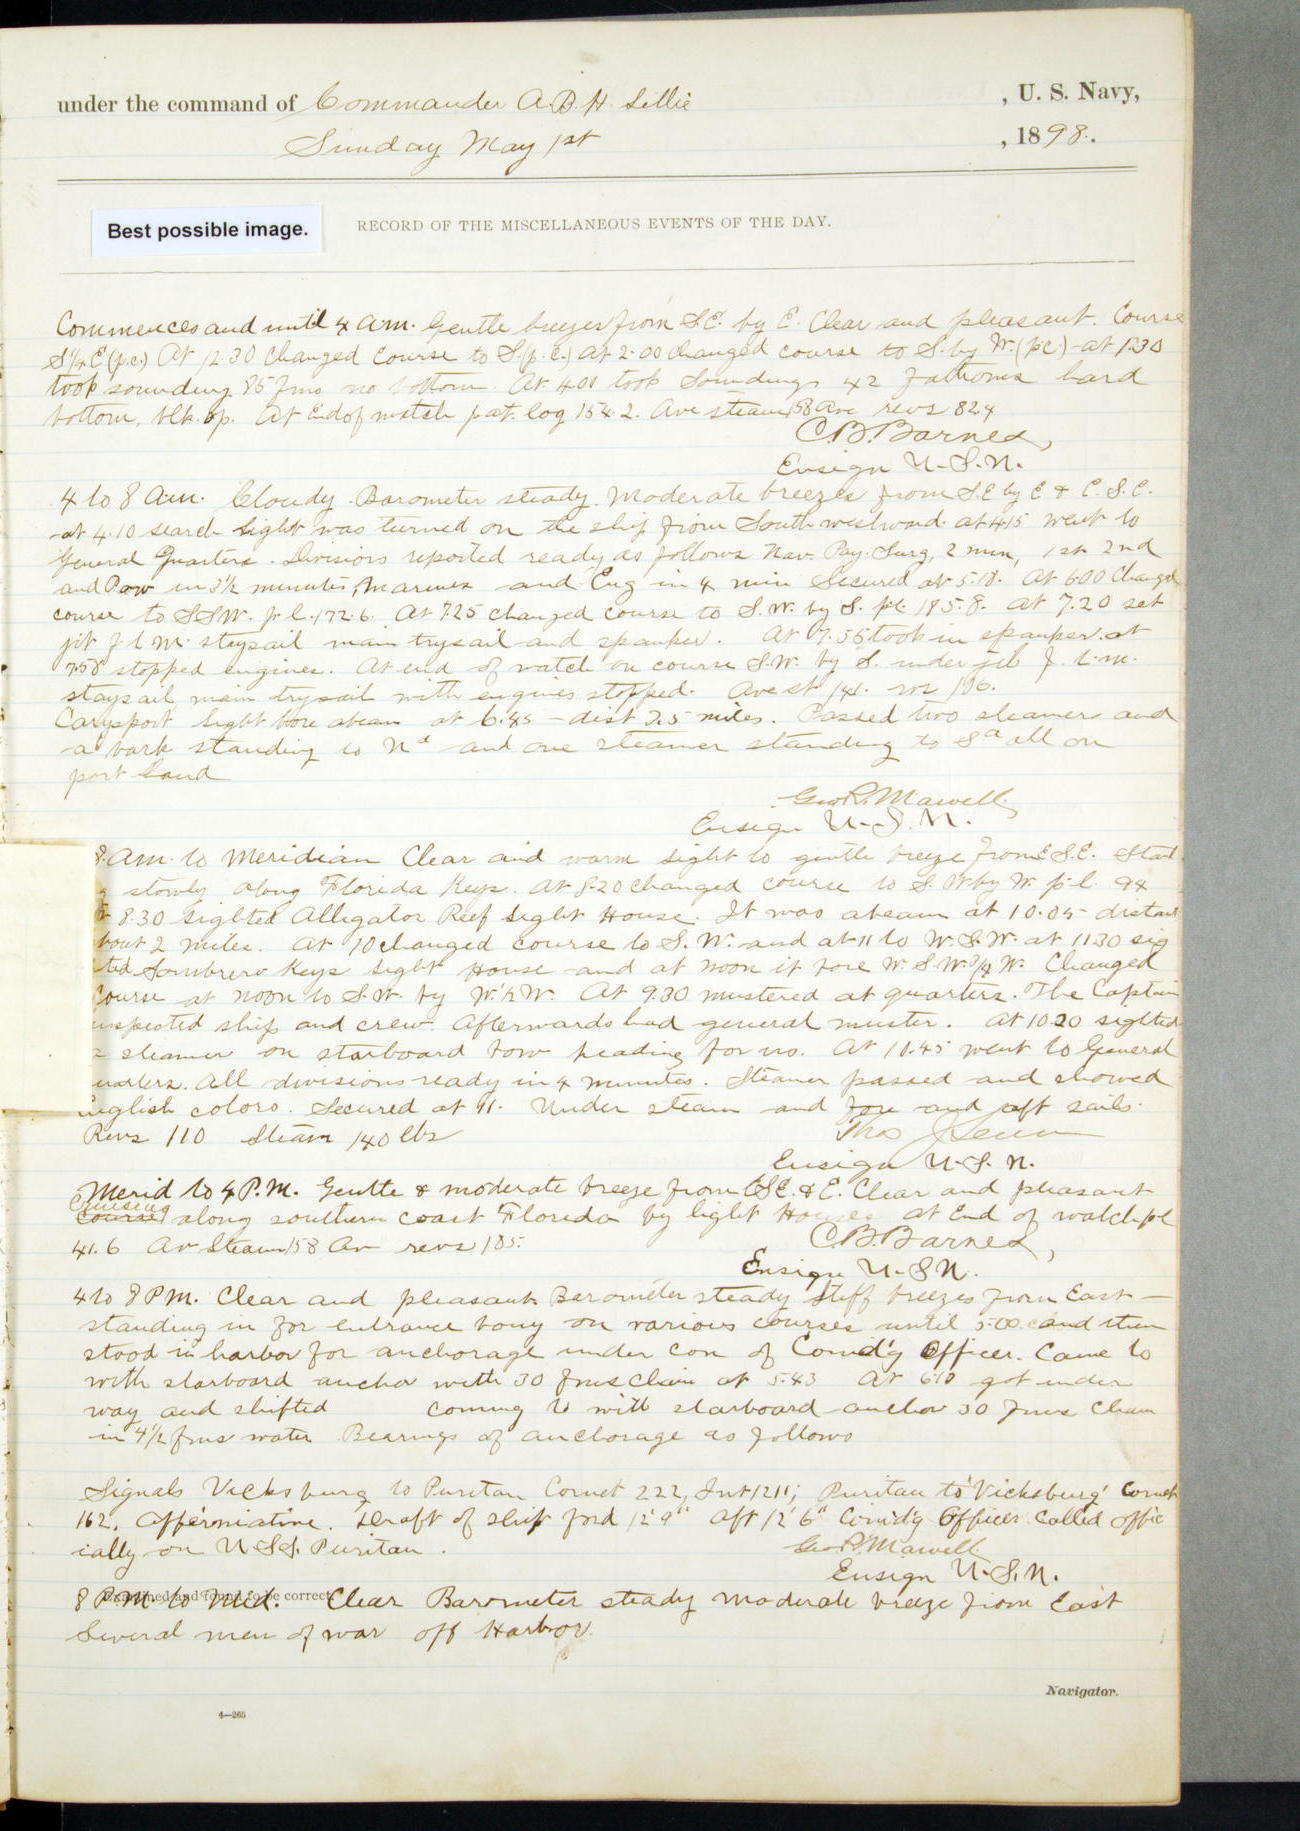 under the command of Commander A.B.H. Lillie , U. S. Navy,
Sunday May 1st , 1898.
Best possible image.
RECORD OF THE MISCELLANEOUS EVENTS OF THE DAY.
Commences and until 4 a.m. Gentle breezes from S.E. by E. Clear and pleasant. Course
S ¼ E (p.c.) At 12.30 changed course to S. (p.c.) at 2.00 changed course to S. by W. (p.c.) at 1.30
took sounding 85 fms no bottom. At 4.00 took soundings 42 fathoms hard
bottom, blk. sp. At End of watch pat. log 154.2. Ave steam 158 Ave revs 82.4
C.B. Barnes,
Ensign U.S.N.
4 to 8 a.m. Cloudy. Barometer steady. Moderate breezes from S.E by E & E.S.E.
at 4.10 search light was turned on the ship from South westward. at 4.15 went to
General Quarters. Divisions reported ready as follows Nav. Pay. Surg, 2 min, 1st 2nd
and Pow in 3½ minutes, Marines and Eng in 4 min Secured at 5.18. At 6.00 Changed
course to SSW. p.l. 172.6. At 7.25 changed course to S.W. by S. p.l. 185.8. at 7.20 set
jib f.t.m. staysail main trysail and spanker. At 7.55 took in spanker. at
7.58 stopped engines. At end of watch on course S.W. by S. under jib f.t.m.
staysail main trysail with engines stopped. Ave st 141. rvs 106.
Carysport light bore abeam at 6.45 – dist 2.5 miles. Passed two steamer and
a bark standing to Nd and one steamer standing to Sd all on
port hand
Geo R. Marvell
Ensign U.S.N.
8 a.m. to Meridian Clear and warm light to gentle breeze from E.S.E. Stand
g slowly along Florida Keys. At 8.20 changed course to S.W by W. p.l. 94
8.30 sighted Alligator Reef Light House. It was abeam at 10.05 distant
bout 2 miles. At 10 changed course to S.W. and at 11 to W.S.W. at 11.30 sig
ted Sombrero Keys Light House and at noon it bore W.S.W. ¾ W. Changed
course at noon to S.W. by W. ½ W. At 9.30 mustered at quarters. The Captain
inspected ship and crew. Afterwards had general muster. At 10.20 sighted
a steamer on starboard bow heading for us. At 10.45 went to General
uarters. All divisions ready in 4 minutes. Steamer passed and showed
English colors. Secured at 11. Under steam and fore and aft sails.
Revs 110 Steam 140 lbs
Thos
Ensign U.S.N.
Merid to 4 P.M. Gentle & moderate breeze from ESE. & E. Clear and pleasant
Cruising
Course along southern coast Florida by light Houses at End of watch p.l
41.6 Av Steam 158 Av revs 105.
C.B. Barnes,
Ensign U.S.N.
4 to 8 P.M. Clear and pleasant Barometer steady Stiff breezes from East –
standing in for entrance bouy on various courses until 5.00 and then
stood in harbor for anchorage under con of Comd'g Officer. Came to
with starboard anchor with 30 fms chain at 5.43 At 6.10 got under
way and shifted coming to with starboard anchor 30 fms chain
in 4½ fms water Bearings of anchorage as follows
Signals Vicksburg to Puritan Cornet 222, Int 1211; Puritan to 'Vicksburg' Cornet
162, Affermative. Draft of ship ford 12' 9" Aft 12' 6" Comd'g Officer Called offic
ially on U.S.S. Puritan.
Geo R. Marvell
Ensign U.S.N.
Examined and found to be correct.
8 P.M. to Mid. Clear Barometer steady moderate breeze from East
Several men of war off Harbor.
Navigator.
4—265